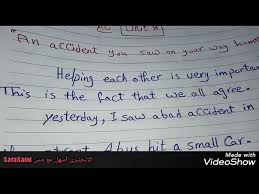 Unit 8
"An accident you saw on your way home"
Helping each other is very important
This is the fact that we all agree.
yesterday, I saw abad accident in
A bus hit a small Car.
SaraSami الانجليزى أسهل مع مس
Made with
VideoShow